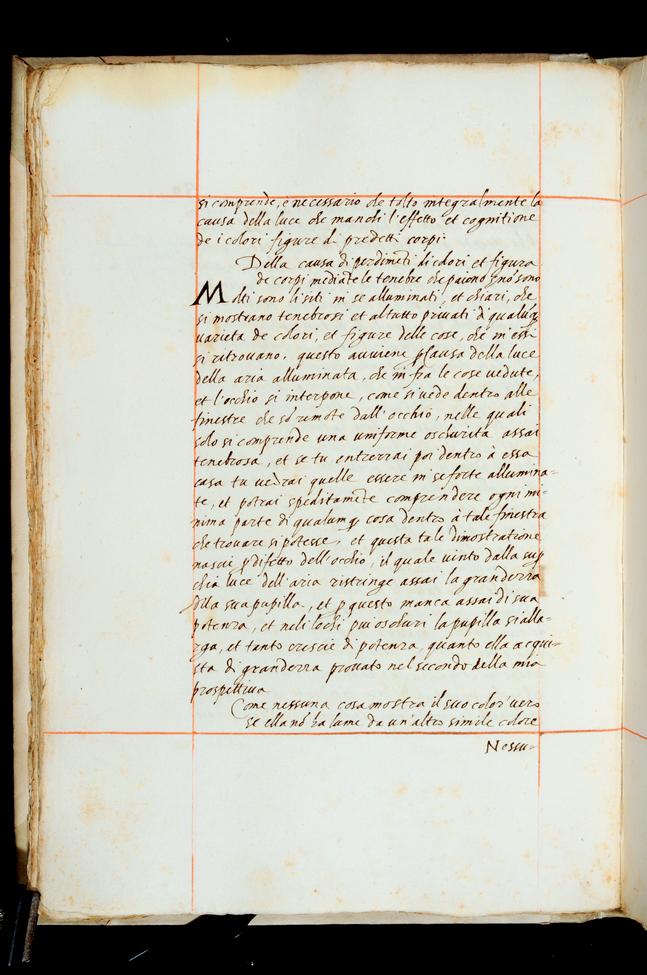 si comprende, è necessario che tolto integralmente la
causa della luce che manchi l'effetto et cognitione
de i colori figure di predetti corpi.
Della causa di perdimēti di colori et figura
de corpi mediāte le tenebre che paiono et nō sono
Molti sono li siti in se alluminati, et chiari, che
si mostrano tenebrosi et al tutto privati di qualūq
varieta de colori, et figure delle cose, che in essi
si ritrovano. questo avviene p causa della luce
della aria alluminata, che in fra le cose vedute,
et l'occhio si interpone, come si vede dentro alle
finestre che sō remote dall'occhio, nelle quali
solo si comprende una uniforme oschurità assai
tenebrosa, et se tu entrerrai poi dentro à essa
casa tu vedrai quelle essere in se forte allumina=
te, et potrai speditamēte comprendere ogni mi=
nima parte di qualunq cosa dentro à tale finestra
che trovare si potesse, et questa tale dimostratione
nascie p difetto dell'occhio, il quale vinto dalla sup
chia luce dell'aria ristringe assai la grandezza
dela sua pupilla, et p questo manca assai di sua
potenza, et neli lochi più oschuri la pupilla si alla=
rga, et tanto crescie di potenza, quanto ella acqui=
sta di grandezza provato nel secondo della mia
prospettiva
Come nessuna cosa mostra il suo color vero
se ella nō ha lume da un'altro simile colore
Nessu=